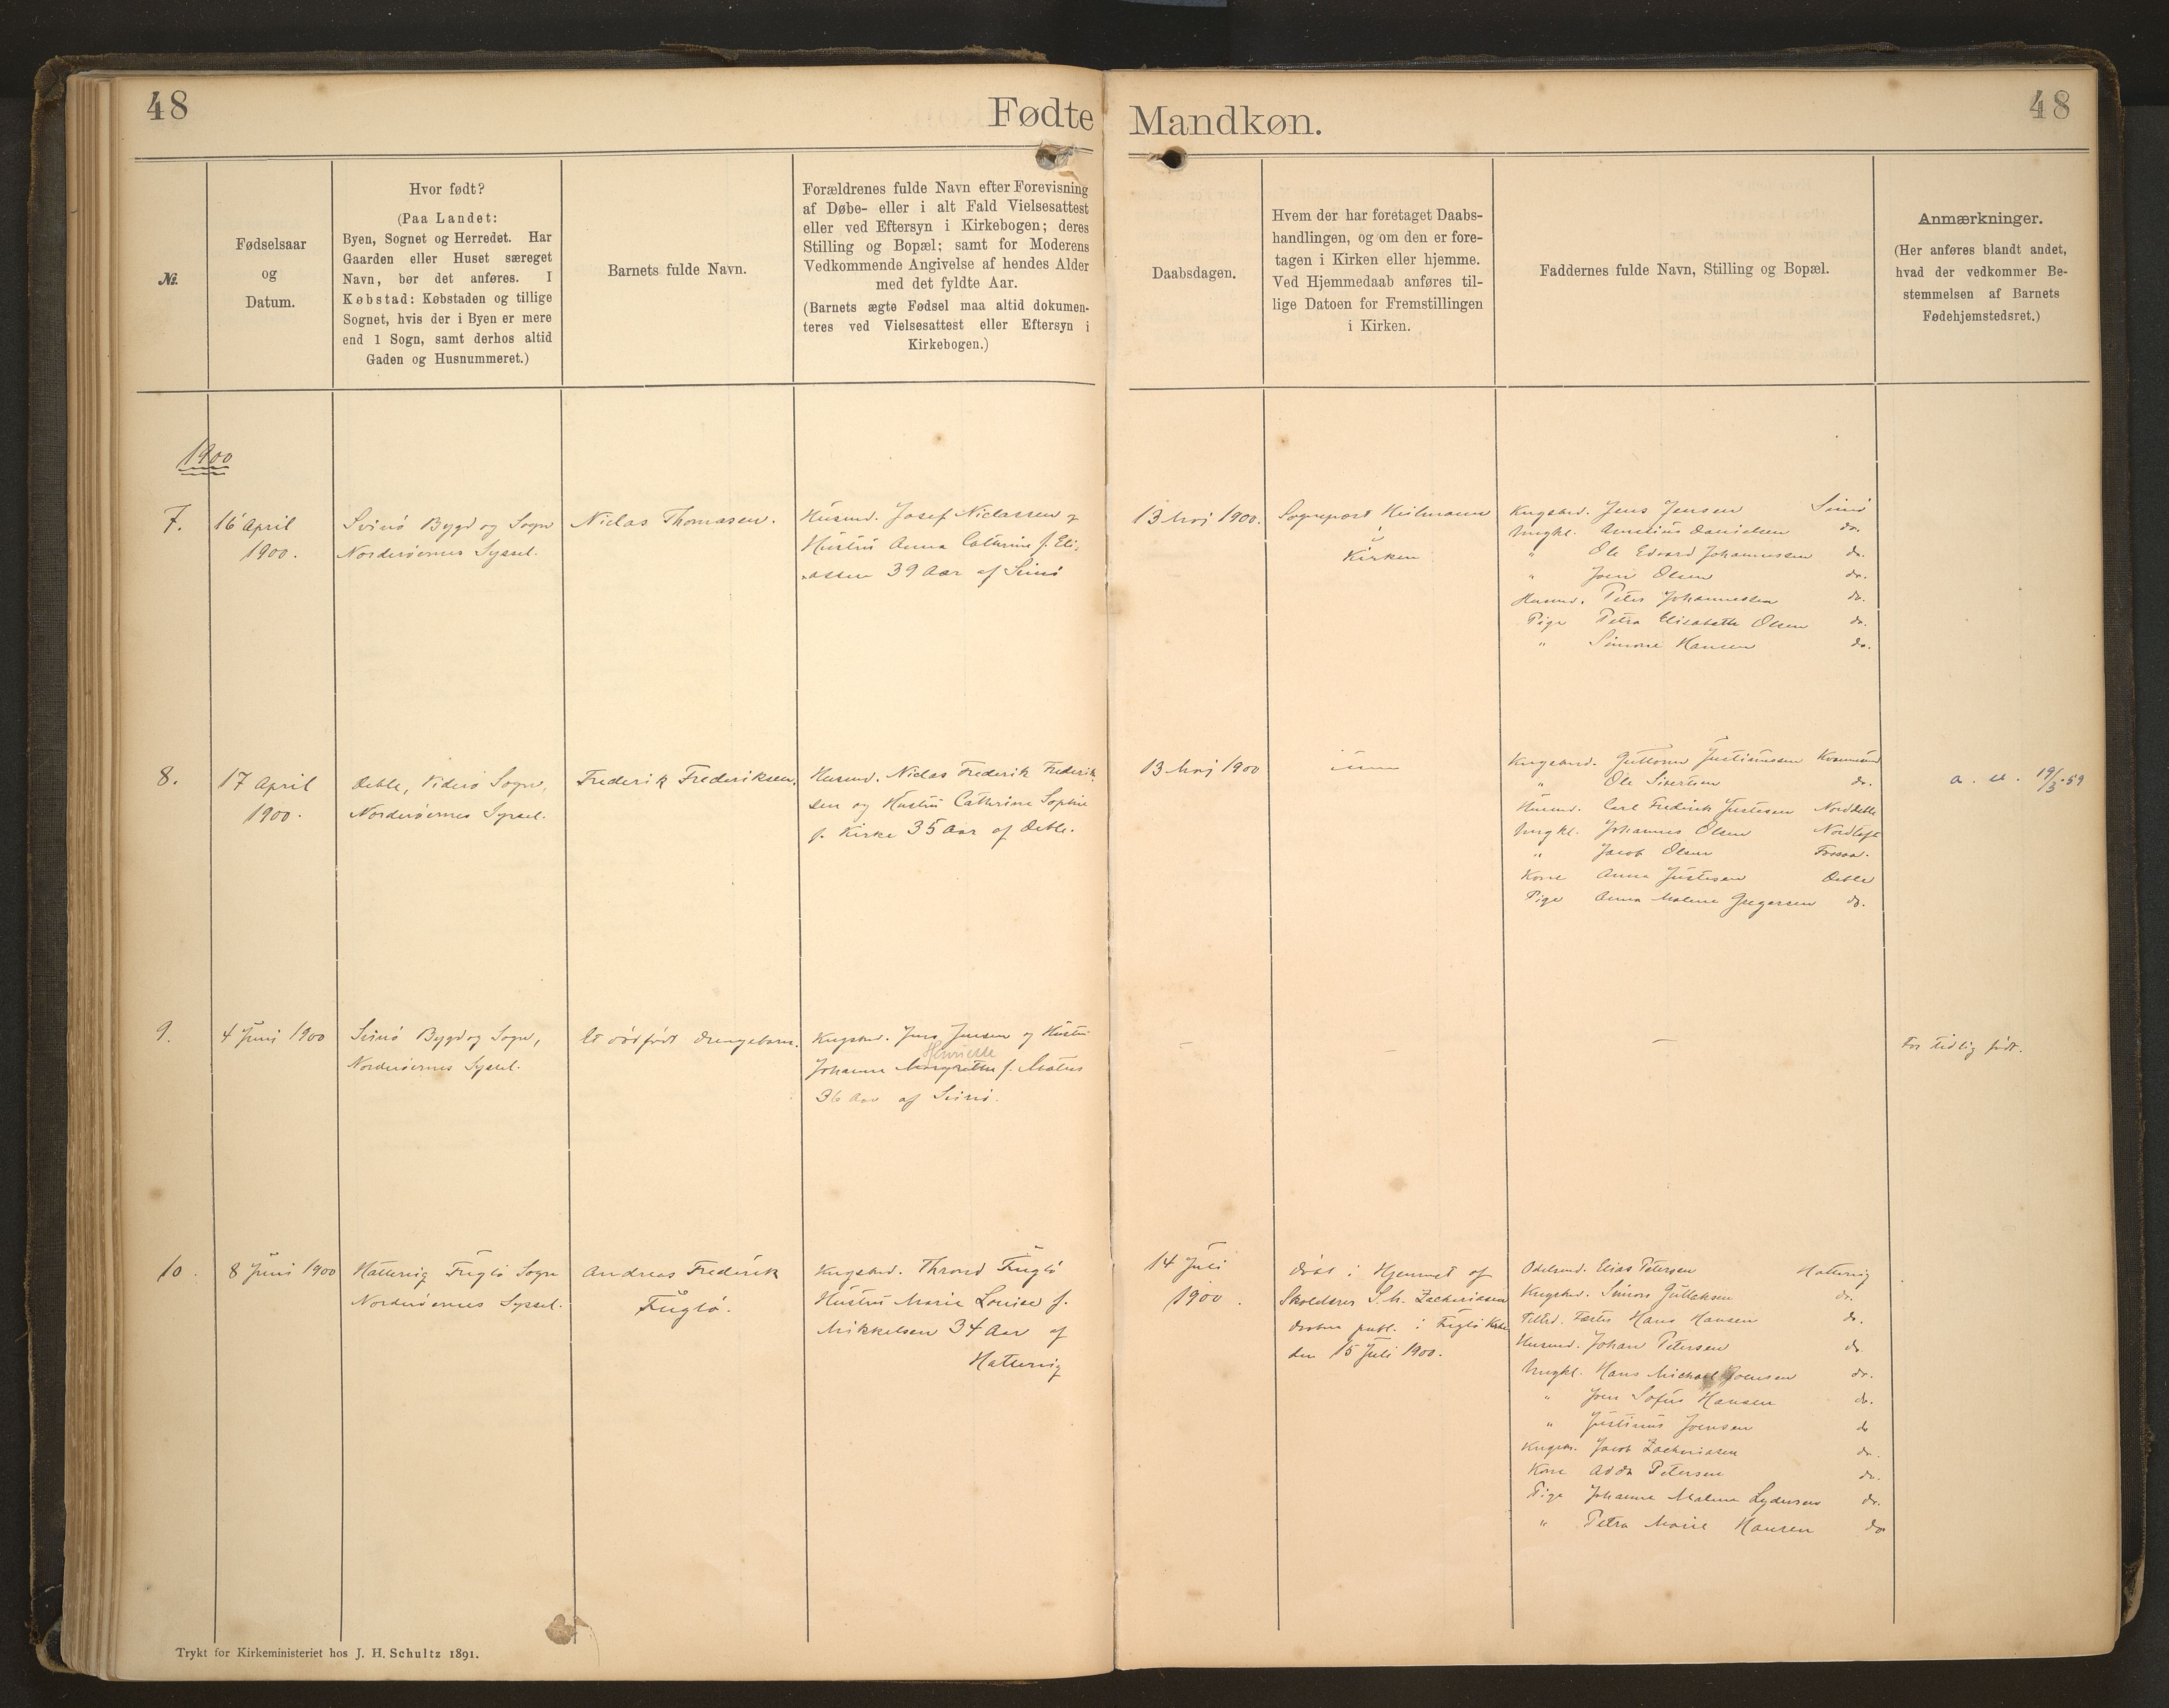 48
Fødte
Mandkøn.
48
№.
Fødselsaar
og
Datum.
Hvor født?
(Paa Landet:
Byen, Sognet og Herredet. Har
Gaarden eller Huset særeget
Navn, bør det anføres. I
Købstad: Købstaden og tillige
Sognet, hvis der i Byen er mere
end 1 Sogn, samt derhos altid
Gaden og Husnummeret.)
Barnets fulde Navn.
Forældrenes fulde Navn efter Forevisning
af Døbe- eller i alt Fald Vielsesattest
eller ved Eftersyn i Kirkebogen; deres
Stilling og Bopæl; samt for Moderens
Vedkommende Angivelse af hendes Alder
med det fyldte Aar.
(Barnets ægte Fødsel maa altid dokumen-
teres ved Vielsesattest eller Eftersyn i
Kirkebogen.)
Daabsdagen.
Hvem der har foretaget Daabs-
handlingen, og om den er fore-
tagen i Kirken eller hjemme.
Ved Hjemmedaab anføres til-
lige Datoen for Fremstillingen
i Kirken.
Faddernes fulde Navn, Stilling og Bopæl.
Anmærkninger.
(Her anføres blandt andet,
hvad der vedkommer Be-
stemmelsen af Barnets
Fødehjemstedsret.)
1900
7.
16 April
1900.
Svinö Bygd og Sogn
Norderöernes Syssel.
Niclas Thomasen.
Husmd. Josef Niclassen og
Hustru Anna Cathrine f. Eli-
assen 39 Aar af Svinö
13 Maj 1900.
Sognepræst Heilmann
i
Kirken
Kngsbmd. Jens Jensen Svinö
Ungkl. Aurelius Danielsen do.
" Ole Edvard Johannessen do.
" Joen Olsen do.
Husmd. Peter Johannessen do.
Pige Petra Elisabeth Olsen do.
" Simone Hansen do.
8.
17 April
1900.
Deble, Viderö Sogn,
Norderöernes Syssel.
Frederik Frederiksen.
Husmd. Niclas Frederik Frederik-
sen og Hustru Cathrine Sophie
f. Kirke 35 Aar af Deble.
13 Maj 1900
Kngsbmd. Guttorm Justinussen
" Ole Sivertsen do.
Husmd. Carl Frederik Justesen Norddeble
Ungkl. Johannes Olsen
" Jacob Olsen
Kone Anna Justesen Deble
Pige Anna Malene Gregersen do.
a. u. 19/3-59
9.
4 Juni 1900
Svinö Bygd og Sogn,
Norderöernes Syssel.
Et dödfödt Drengebarn.
Kngsbmd. Jens Jensen og Hustru
Henriette
Johanna Margrethe f. Matras
36 Aar af Svinö.
–
–
–
For tidlig født.
10.
8 Juni 1900
Hattervig Fuglö Sogn
Norderöernes Syssel.
Andreas Frederik
Fuglö.
Kngsbmd. Thrond Fuglö
Hustru Marie Louise f.
Mikkelsen 34 Aar af
Hattervig
14 Juli
1900.
Döbt i Hjemmet af
Skolelærer S. M. Zachariasen
Daaben publ. i Fuglö Kirke
den 15 Juli 1900.
Odelsmd. Elias Petersen Hattervig
Kngsbmd. Simon Gullaksen do.
Fæster Hans Hansen do.
Husmd. Johan Petersen do.
Ungkl. Hans Michael Joensen do.
" Joen Sofus Hansen do.
" Justinus Joensen do
Jacob Zachariasen do.
Kone Adda Petersen do.
Pige Johanne Malene Lydersen do.
" Petra Marie Hansen do
Trykt for Kirkeministeriet hos J. H. Schultz 1891.